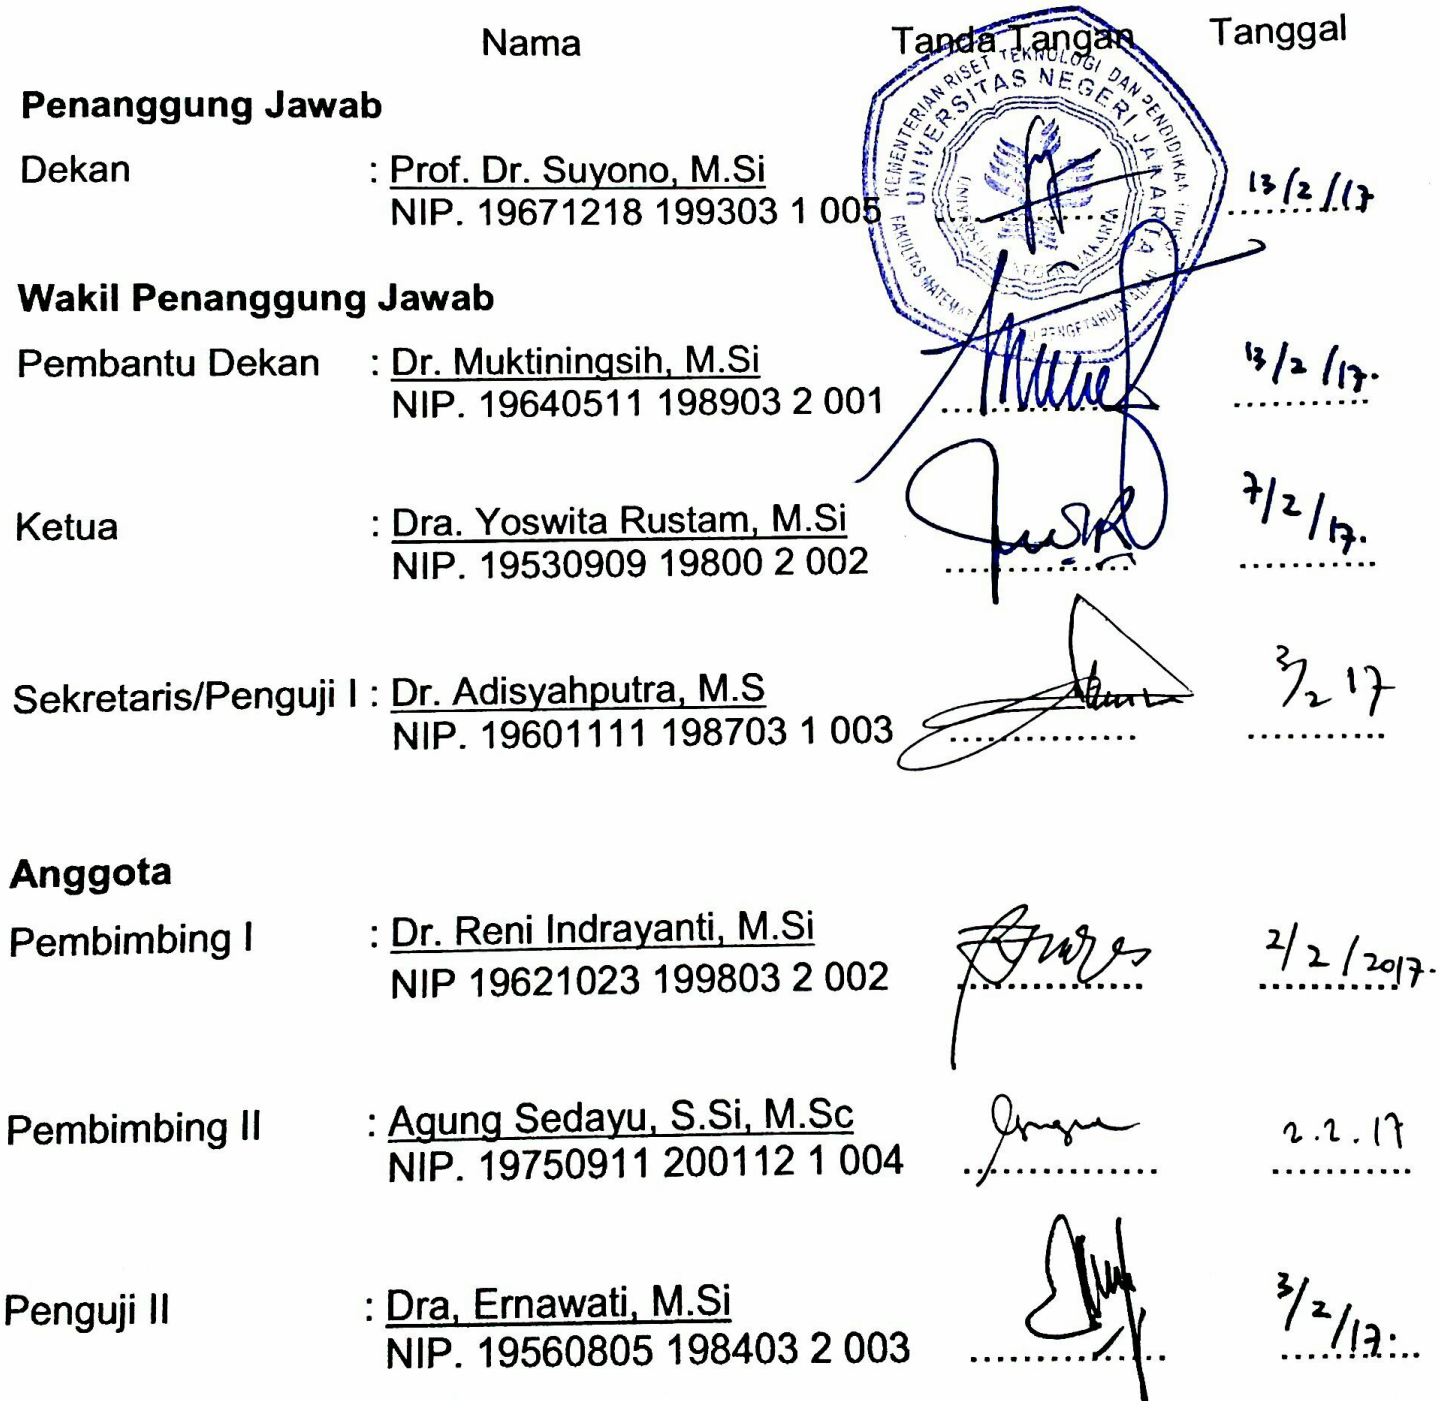 Nama Tanda Tangan Tanggal
Penanggung Jawab
Dekan : Prof. Dr. Suyono, M.Si 13/2/17
NIP. 19671218 199303 1 005
KEMENTERIAN RISET TEKNOLOGI DAN PENDIDIKAN
UNIVERSITAS NEGERI JAKARTA
FAKULTAS MATEMAT PENGETAHUAN
Wakil Penanggung Jawab
Pembantu Dekan : Dr. Muktiningsih, M.Si 13/2/17.
NIP. 19640511 198903 2 001
Ketua : Dra. Yoswita Rustam, M.Si 7/2/17.
NIP. 19530909 19800 2 002
Sekretaris/Penguji I : Dr. Adisyahputra, M.S 3/2 17
NIP. 19601111 198703 1 003
Anggota
Pembimbing I : Dr. Reni Indrayanti, M.Si 2/2/2017.
NIP 19621023 199803 2 002
Pembimbing II : Agung Sedayu, S.Si, M.Sc 2.2.17
NIP. 19750911 200112 1 004
Penguji II : Dra, Ernawati, M.Si 3/2/17.
NIP. 19560805 198403 2 003